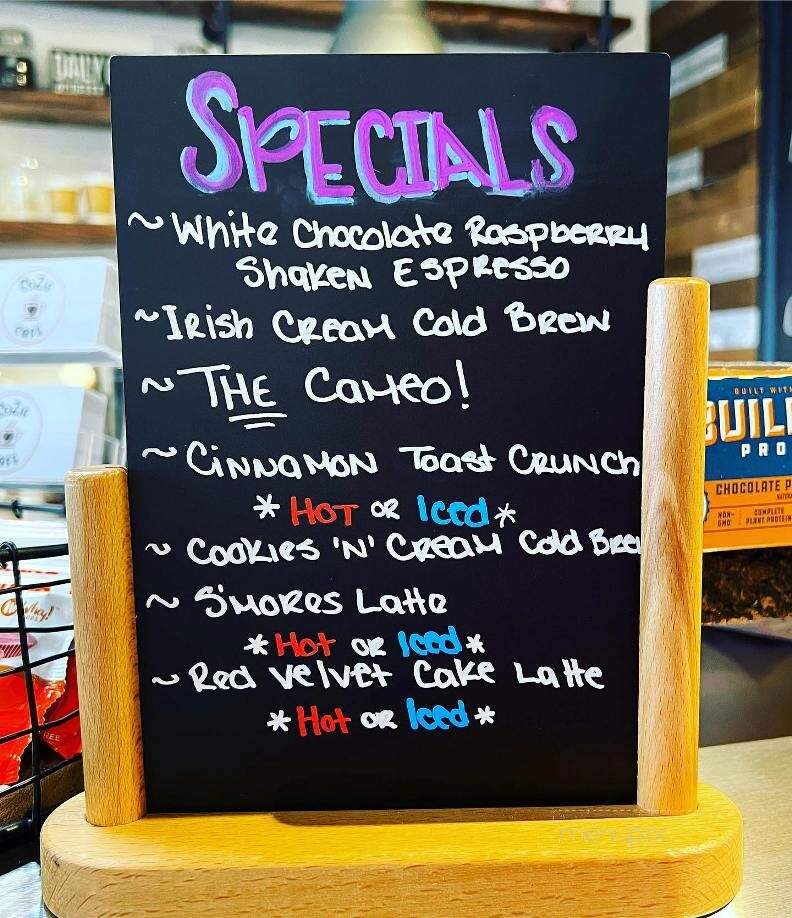 DAILY
SPECIALS
~ White Chocolate Raspberry
Shaken Espresso
~ Irish Cream Cold Brew
~ THE Cameo!
~ Cinnamon Toast Crunch
* Hot or Iced *
~ Cookies 'N' Cream Cold Brew
~ S'mores Latte
* Hot or Iced *
~ Red Velvet Cake Latte
* Hot or Iced *
BUILT WITH
BUIL
PRO
CHOCOLATE P
NON-
GMO
COMPLETE
PLANT PROTEIN
Whey!
menupix